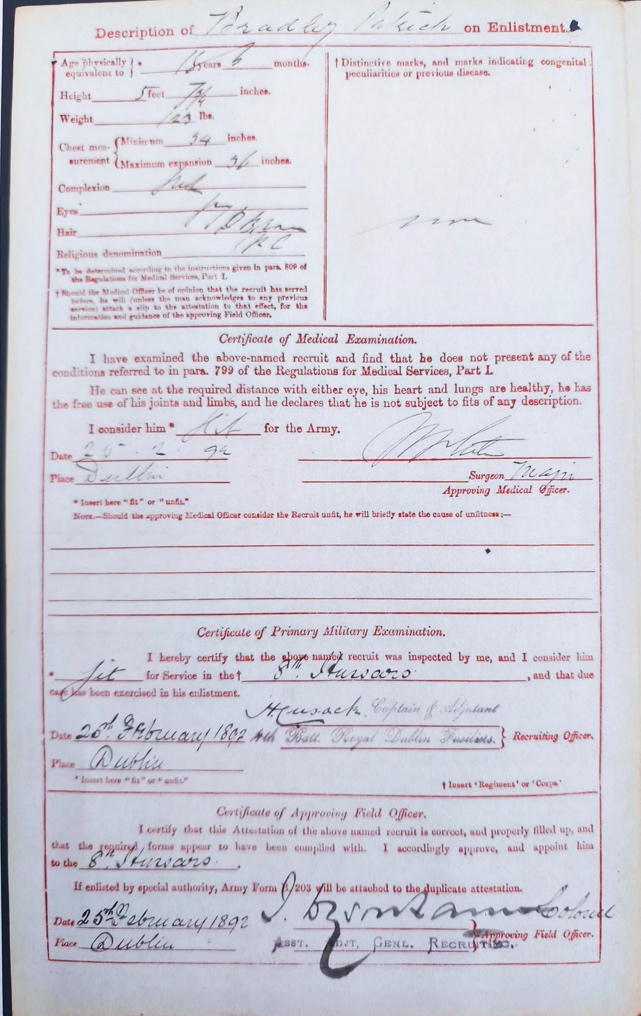 Description of Bradley Patrick on Enlistment.
Age physically equivalent to } * years 6 months.
Height 5 feet inches.
Weight 123 lbs.
Chest measurement { Minimum 34 inches.
Maximum expansion 36 inches.
Complexion
Eyes
Hair
Religious denomination RC
*To be determined according to the instructions given in para. 809 of
the Regulations for Medical Services, Part I.
† Should the Medical Officer be of opinion that the recruit has served
before, he will (unless the man acknowledges to any previous
service) attach a slip to the attestation to that effect, for the
information and guidance of the approving Field Officer.
† Distinctive marks, and marks indicating congenital
peculiarities or previous disease.
none
Certificate of Medical Examination.
I have examined the above-named recruit and find that he does not present any of the
conditions referred to in para. 799 of the Regulations for Medical Services, Part I.
He can see at the required distance with either eye, his heart and lungs are healthy, he has
the free use of his joints and limbs, and he declares that he is not subject to fits of any description.
I consider him * fit for the Army.
Date 25 . 2 . 92
Place Dublin
Surgeon Major
Approving Medical Officer.
* Insert here "fit" or "unfit."
NOTE.—Should the approving Medical Officer consider the Recruit unfit, he will briefly state the cause of unfitness:—
Certificate of Primary Military Examination.
I hereby certify that the above named recruit was inspected by me, and I consider him
* fit for Service in the † 8th Hussars, and that due
care has been exercised in his enlistment.
H Cusack Captain & Adjutant
Date 25th February 1892 4th Batt. Royal Dublin Fusiliers. } Recruiting Officer.
Place Dublin
* Insert here "fit" or "unfit." † Insert 'Regiment' or 'Corps.'
Certificate of Approving Field Officer.
I certify that this Attestation of the above named recruit is correct, and properly filled up, and
that the required forms appear to have been complied with. I accordingly approve, and appoint him
to the 8th Hussars.
If enlisted by special authority, Army Form B/203 will be attached to the duplicate attestation.
Date 25th February 1892 Colonel
} Approving Field Officer.
Place Dublin ASST. ADJT. GENL. RECRUITING.